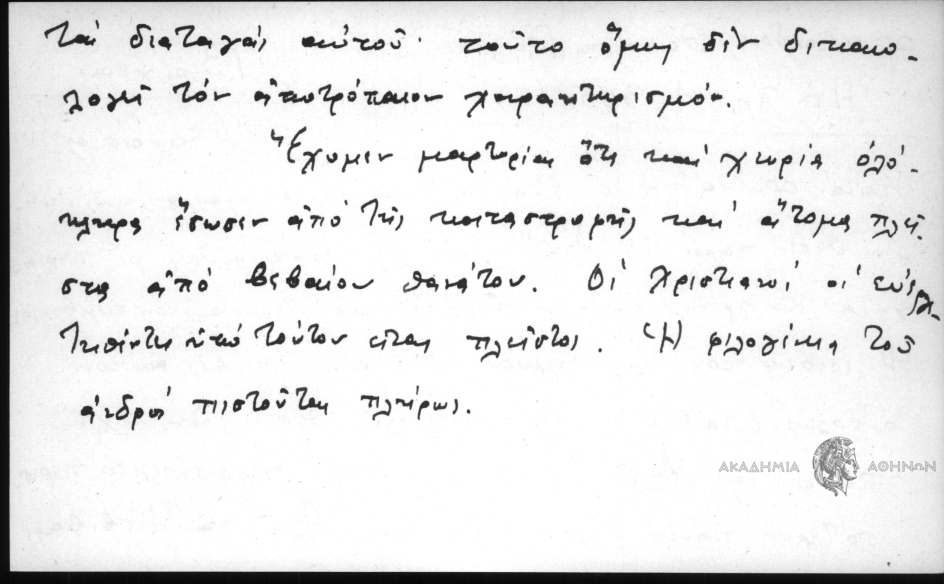 τὰς διαταγάς αὐτοῦ· τοῦτο ὅμως δὲν δικαιο-
λογεῖ τόν ἀποτρόπαιον χαρακτηρισμόν.
Ἔχομεν μαρτυρίας ὅτι καί χωρία ὁλό-
κληρα ἔσωσεν ἀπό τῆς καταστροφῆς καί ἄτομα πλεῖ-
στα ἀπό βεβαίου θανάτου. Οἱ Χριστιανοί οἱ εὐεργε-
τηθέντες ὑπό τούτου εἶναι πλεῖστοι. Ἡ φιλογένεια τοῦ
ἀνδρός πιστοῦται πλήρως.
ΑΚΑΔΗΜΙΑ ΑΘΗΝΩΝ